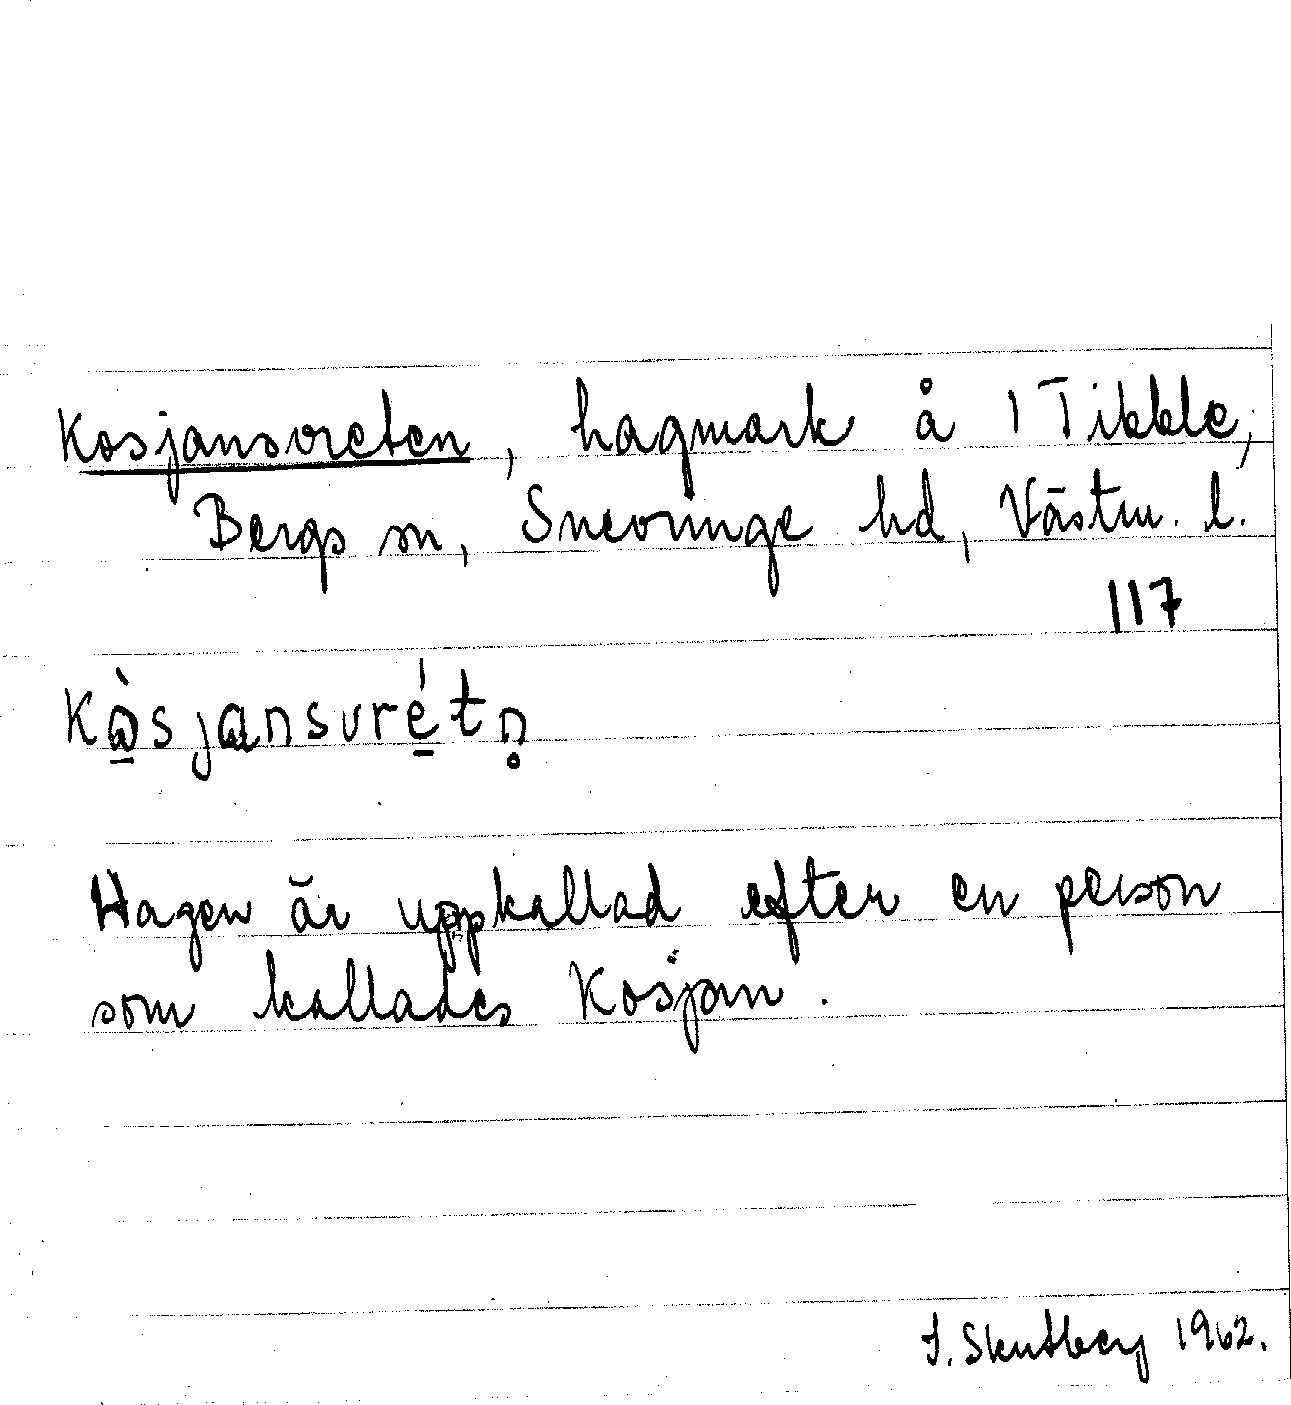 Kosjansvreten, hagmark å 1 Tibble,
Bergs sn, Snevringe hd, Västm. l.
117
kòsjansvrétn̥
Hagen är uppkallad efter en person
som kallades Kosjan.
S. Skutberg 1962.